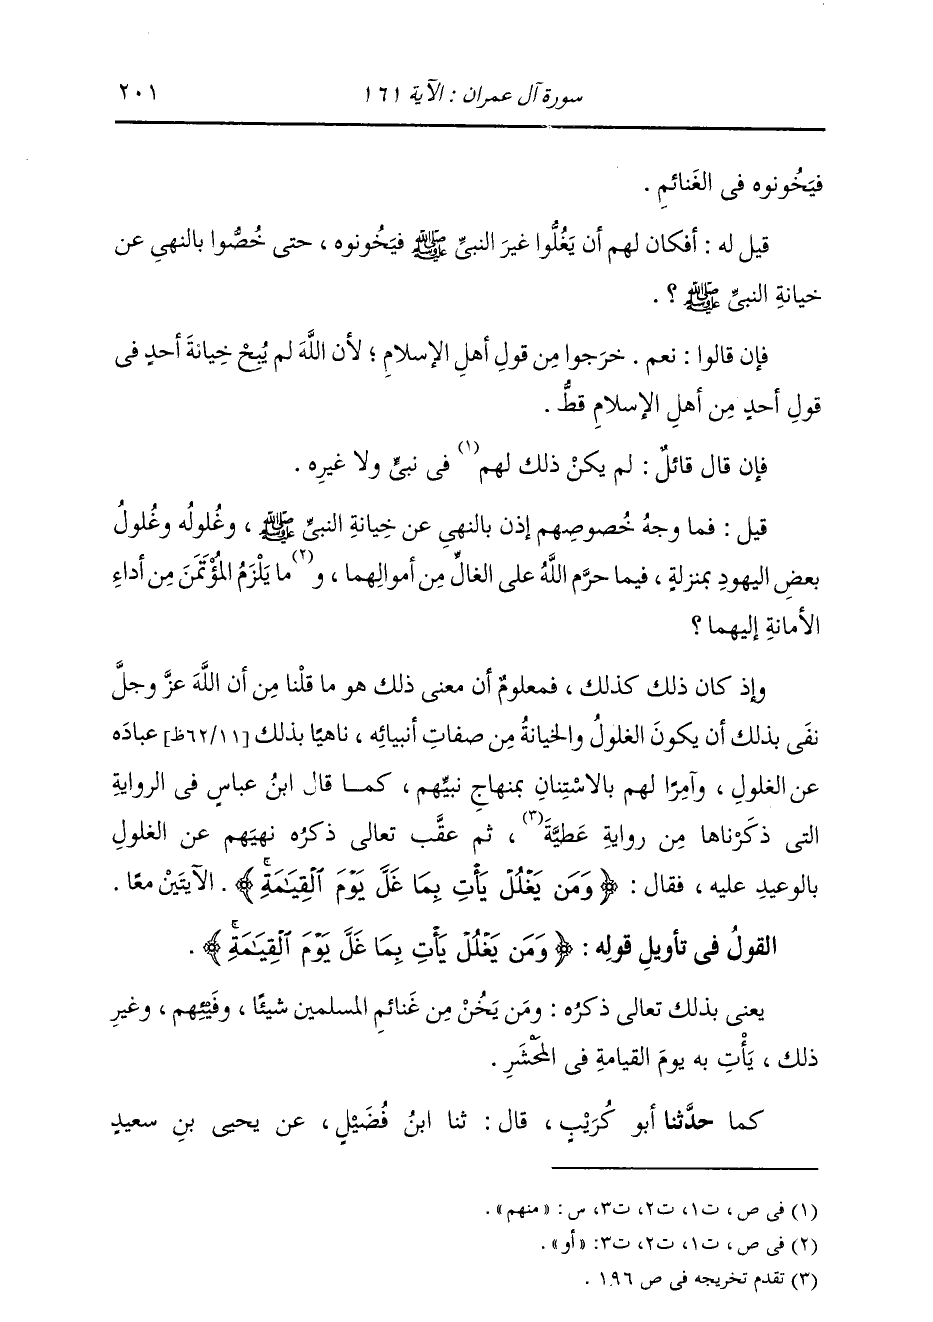 سورة آل عمران : الآية ١٦١ ٢٠١
فيَخُونوه فى الغَنائمِ .
قيل له : أفكان لهم أن يَغُلُّوا غيرَ النبىِّ ﷺ فيَخُونوه ، حتى خُصُّوا بالنهيِ عن
خيانةِ النبىِّ ﷺ ؟ .
فإن قالوا : نعم . خرَجوا مِن قولِ أهلِ الإسلامِ ؛ لأن اللَّهَ لم يُبِحْ خِيانةَ أحدٍ فى
قولِ أحدٍ مِن أهلِ الإسلامِ قطُّ .
فإن قال قائلٌ : لم يكنْ ذلك لهم(١) فى نبىٍّ ولا غيرِه .
قيل : فما وجهُ خُصوصِهم إذن بالنهىِ عن خِيانةِ النبىِّ ﷺ ، وغُلولُه وغُلولُ
بعضِ اليهودِ بمنزلةٍ ، فيما حرَّم اللَّهُ على الغالِّ مِن أموالِهما ، و(٢)ما يَلْزَمُ المُؤْتَمَنَ مِن أداءِ
الأمانةِ إليهما ؟
وإذ كان ذلك كذلك ، فمعلومٌ أن معنى ذلك هو ما قلْنا مِن أن اللَّهَ عزَّ وجلَّ
نفَى بذلك أن يكونَ الغلولُ والخيانةُ مِن صفاتِ أنبيائِه ، ناهيًا بذلك [٦٢/١١ظ] عبادَه
عن الغلولِ ، وآمِرًا لهم بالاسْتِنانِ بمنهاجِ نبيِّهم ، كما قال ابنُ عباسٍ فى الروايةِ
التى ذكَرْناها مِن روايةِ عَطيَّةَ(٣) ، ثم عقَّب تعالى ذكرُه نهيَهم عن الغلولِ
بالوعيدِ عليه ، فقال : ﴿ وَمَن يَغْلُلْ يَأْتِ بِمَا غَلَّ يَوْمَ ٱلْقِيَٰمَةِۚ ﴾ . الآيتَيْن معًا .
القولُ فى تأويلِ قولِه : ﴿ وَمَن يَغْلُلْ يَأْتِ بِمَا غَلَّ يَوْمَ ٱلْقِيَٰمَةِۚ ﴾ .
يعنى بذلك تعالى ذكرُه : ومَن يَخُنْ مِن غَنائمِ المسلمين شيئًا ، وفَيْئِهم ، وغيرِ
ذلك ، يَأْتِ به يومَ القيامةِ فى المَحْشَرِ .
كما حدَّثنا أبو كُرَيْبٍ ، قال : ثنا ابنُ فُضَيْلٍ ، عن يحيى بنِ سعيدٍ
(١) فى ص ، ت١، ت٢، ت٣، س : «منهم» .
(٢) فى ص ، ت١، ت٢، ت٣: «أو» .
(٣) تقدم تخريجه فى ص ١٩٦ .